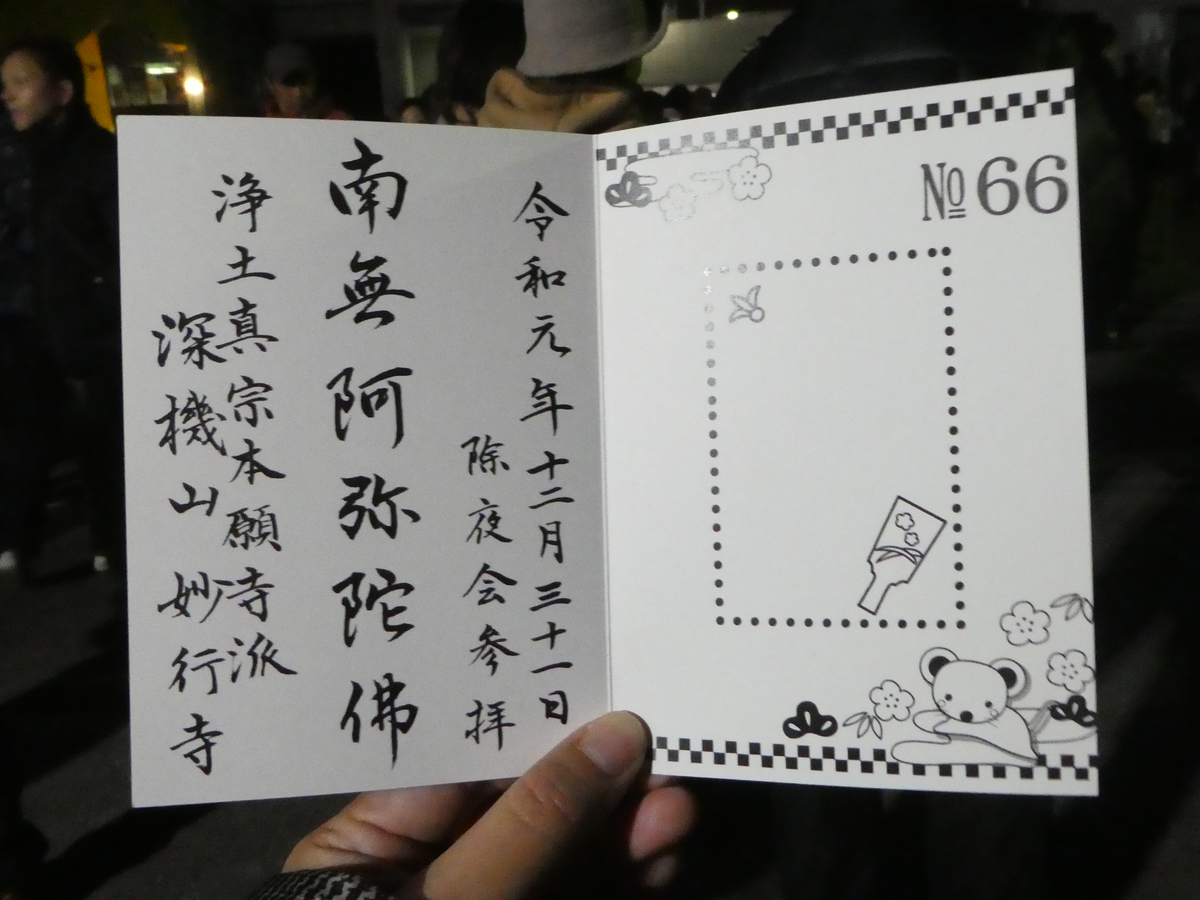 №66
令和元年十二月三十一日
除夜会参拝
南無阿弥陀佛
浄土真宗本願寺派
深機山妙行寺